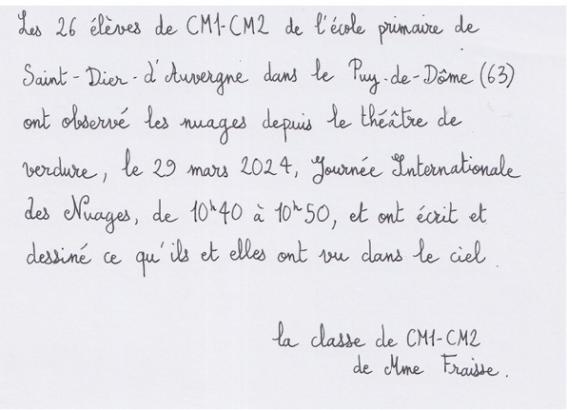 Les 26 élèves de CM1-CM2 de l'école primaire de
Saint-Dier-d'Auvergne dans le Puy-de-Dôme (63)
ont observé les nuages depuis le théâtre de
verdure, le 29 mars 2024, Journée Internationale
des Nuages, de 10h40 à 10h50, et ont écrit et
dessiné ce qu'ils et elles ont vu dans le ciel.
la classe de CM1-CM2
de Mme Fraisse.